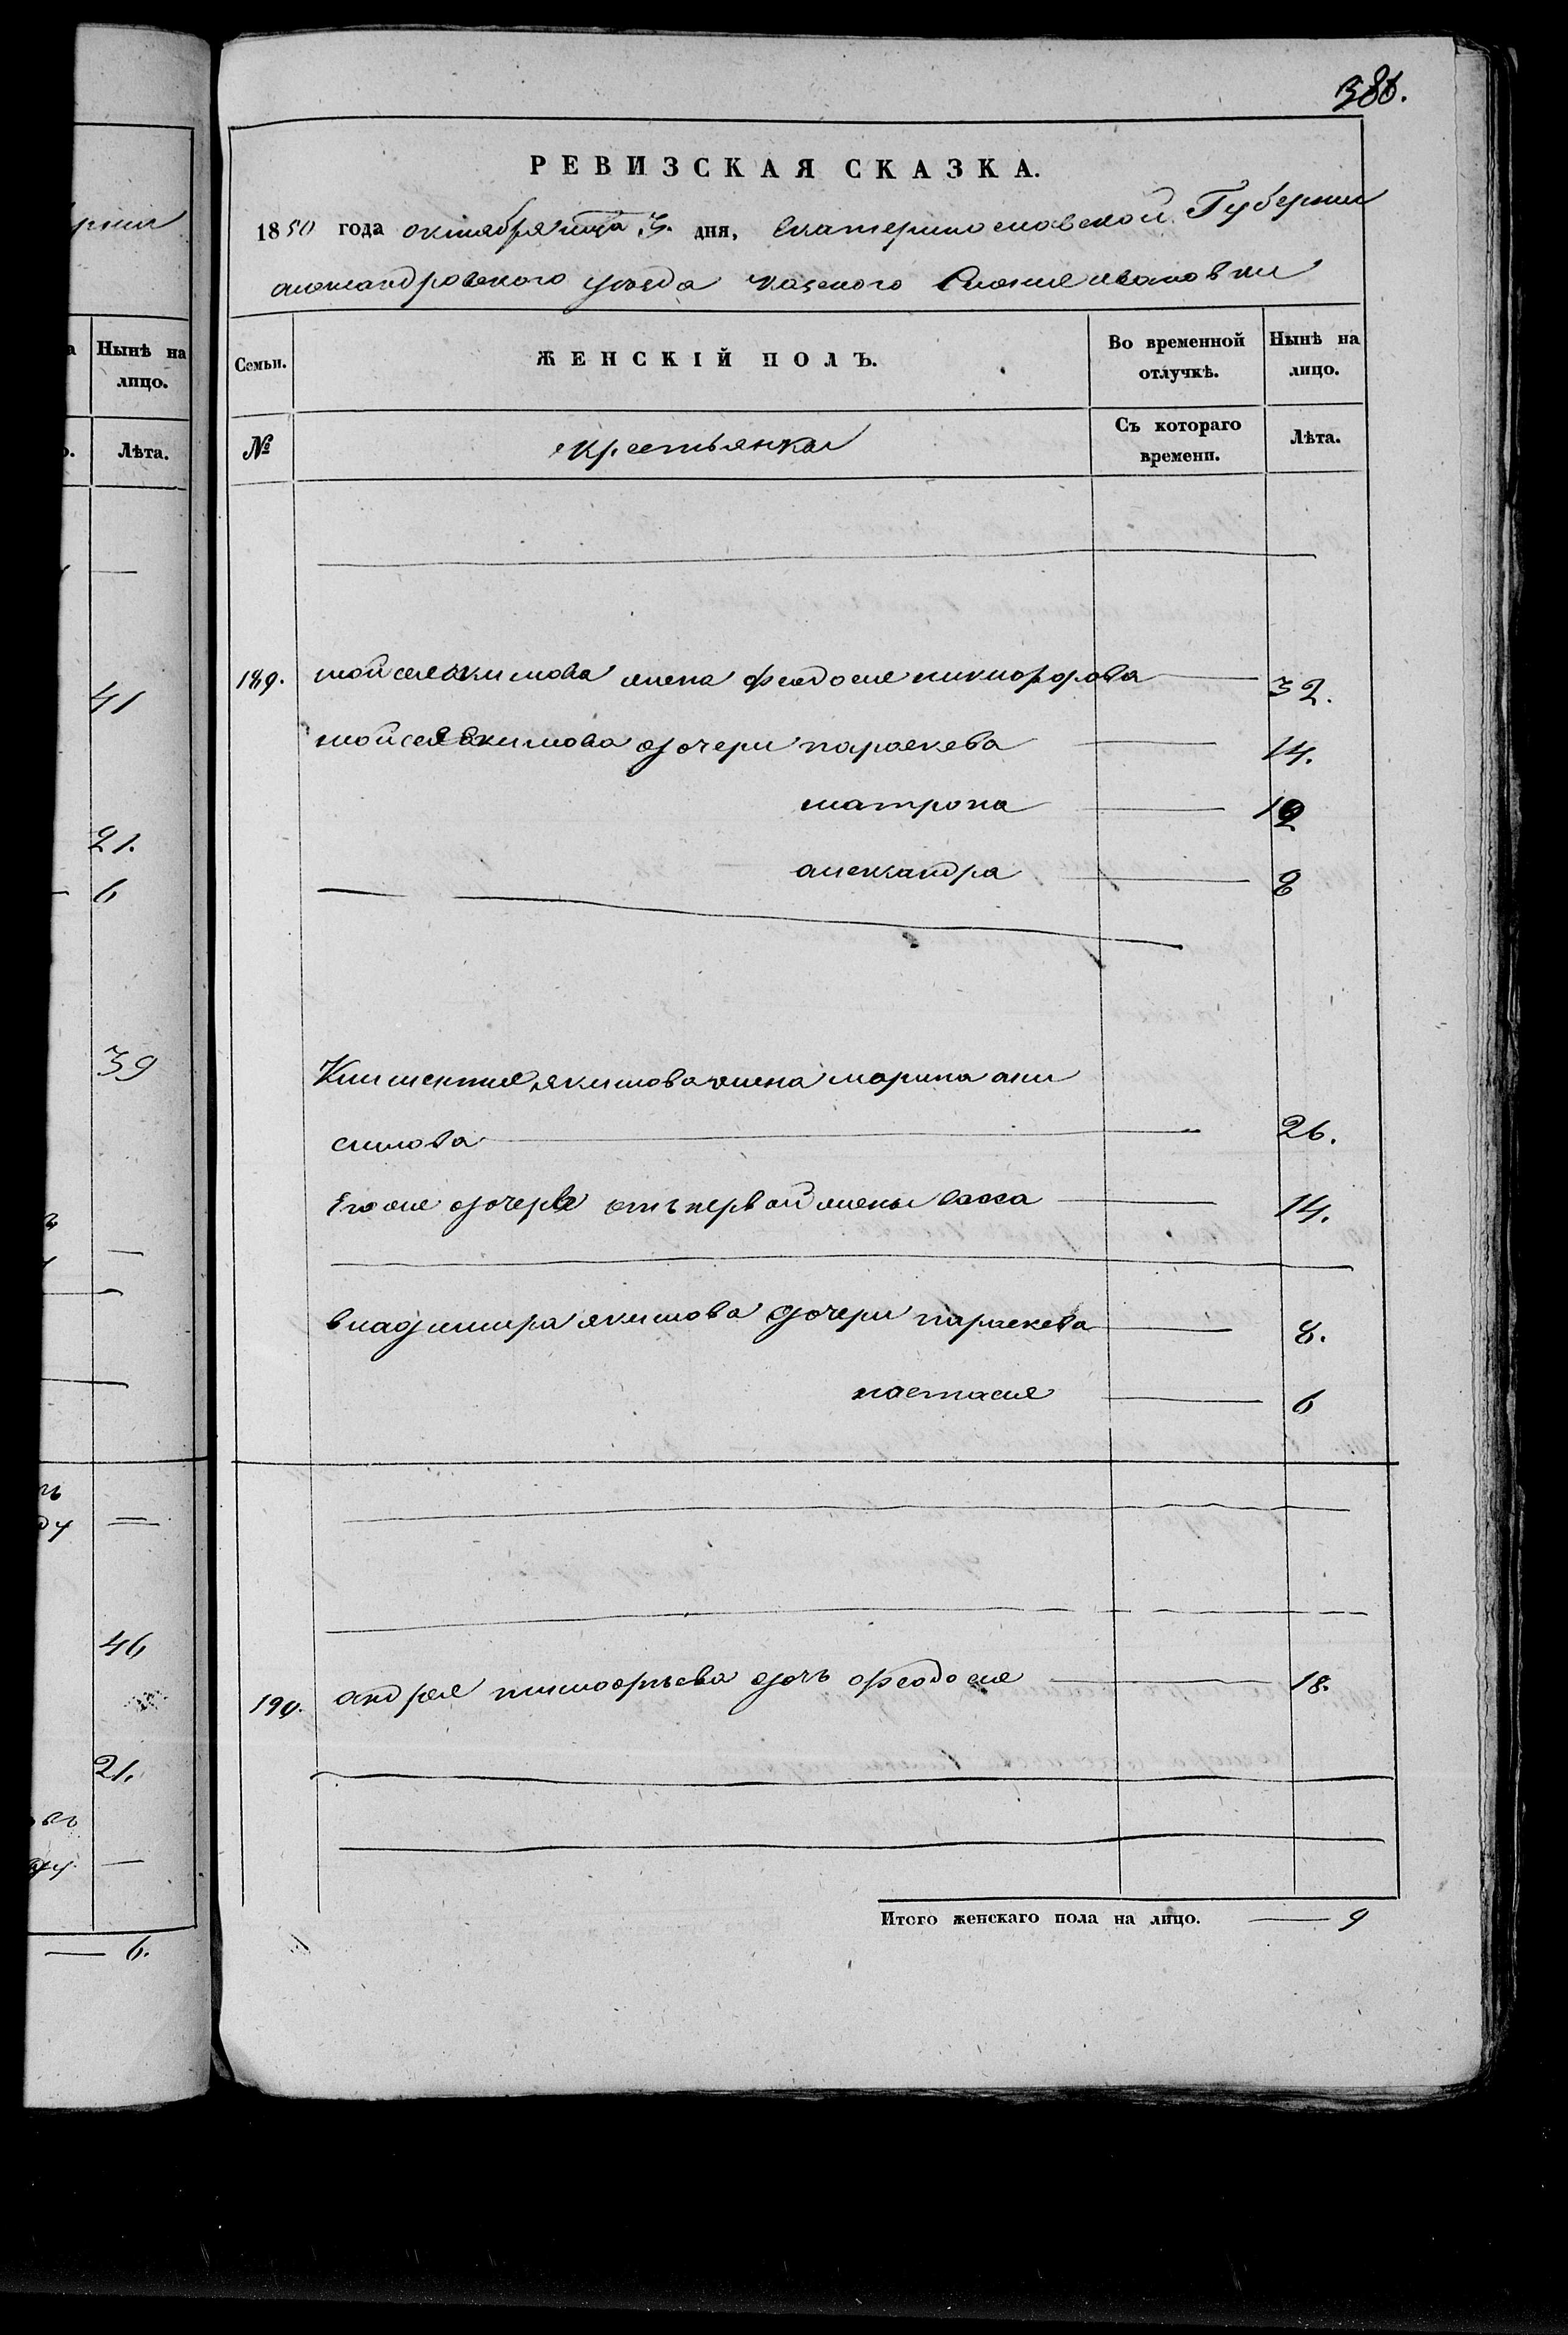 ерніи
Нынѣ на
лицо.
Лѣта.
41
21.
6
39
46
21.
6.
386.
РЕВИЗСКАЯ СКАЗКА.
1850 года октября мца 3. дня, Екатеринославской Губерніи
александровского уезда казеного Селения ивановки
Семьи. ЖЕНСКІЙ ПОЛЪ. Во временной отлучкѣ. Нынѣ на лицо.
№ крестьянка Съ котораго времени. Лѣта.
189. мойсея якимова жена феодосия никифорова 32.
мойсея Якимова дочери параскева 14.
матрона 12
александра 8
Климентия якимова жена марина ани
симова 26.
Его же дочерь отъ первой жены васса 14.
владимира якимова дочери параскева 8.
настасия 6
190. андрея тимофѣева дочь феодосия 18.
Итого женскаго пола на лицо. 9